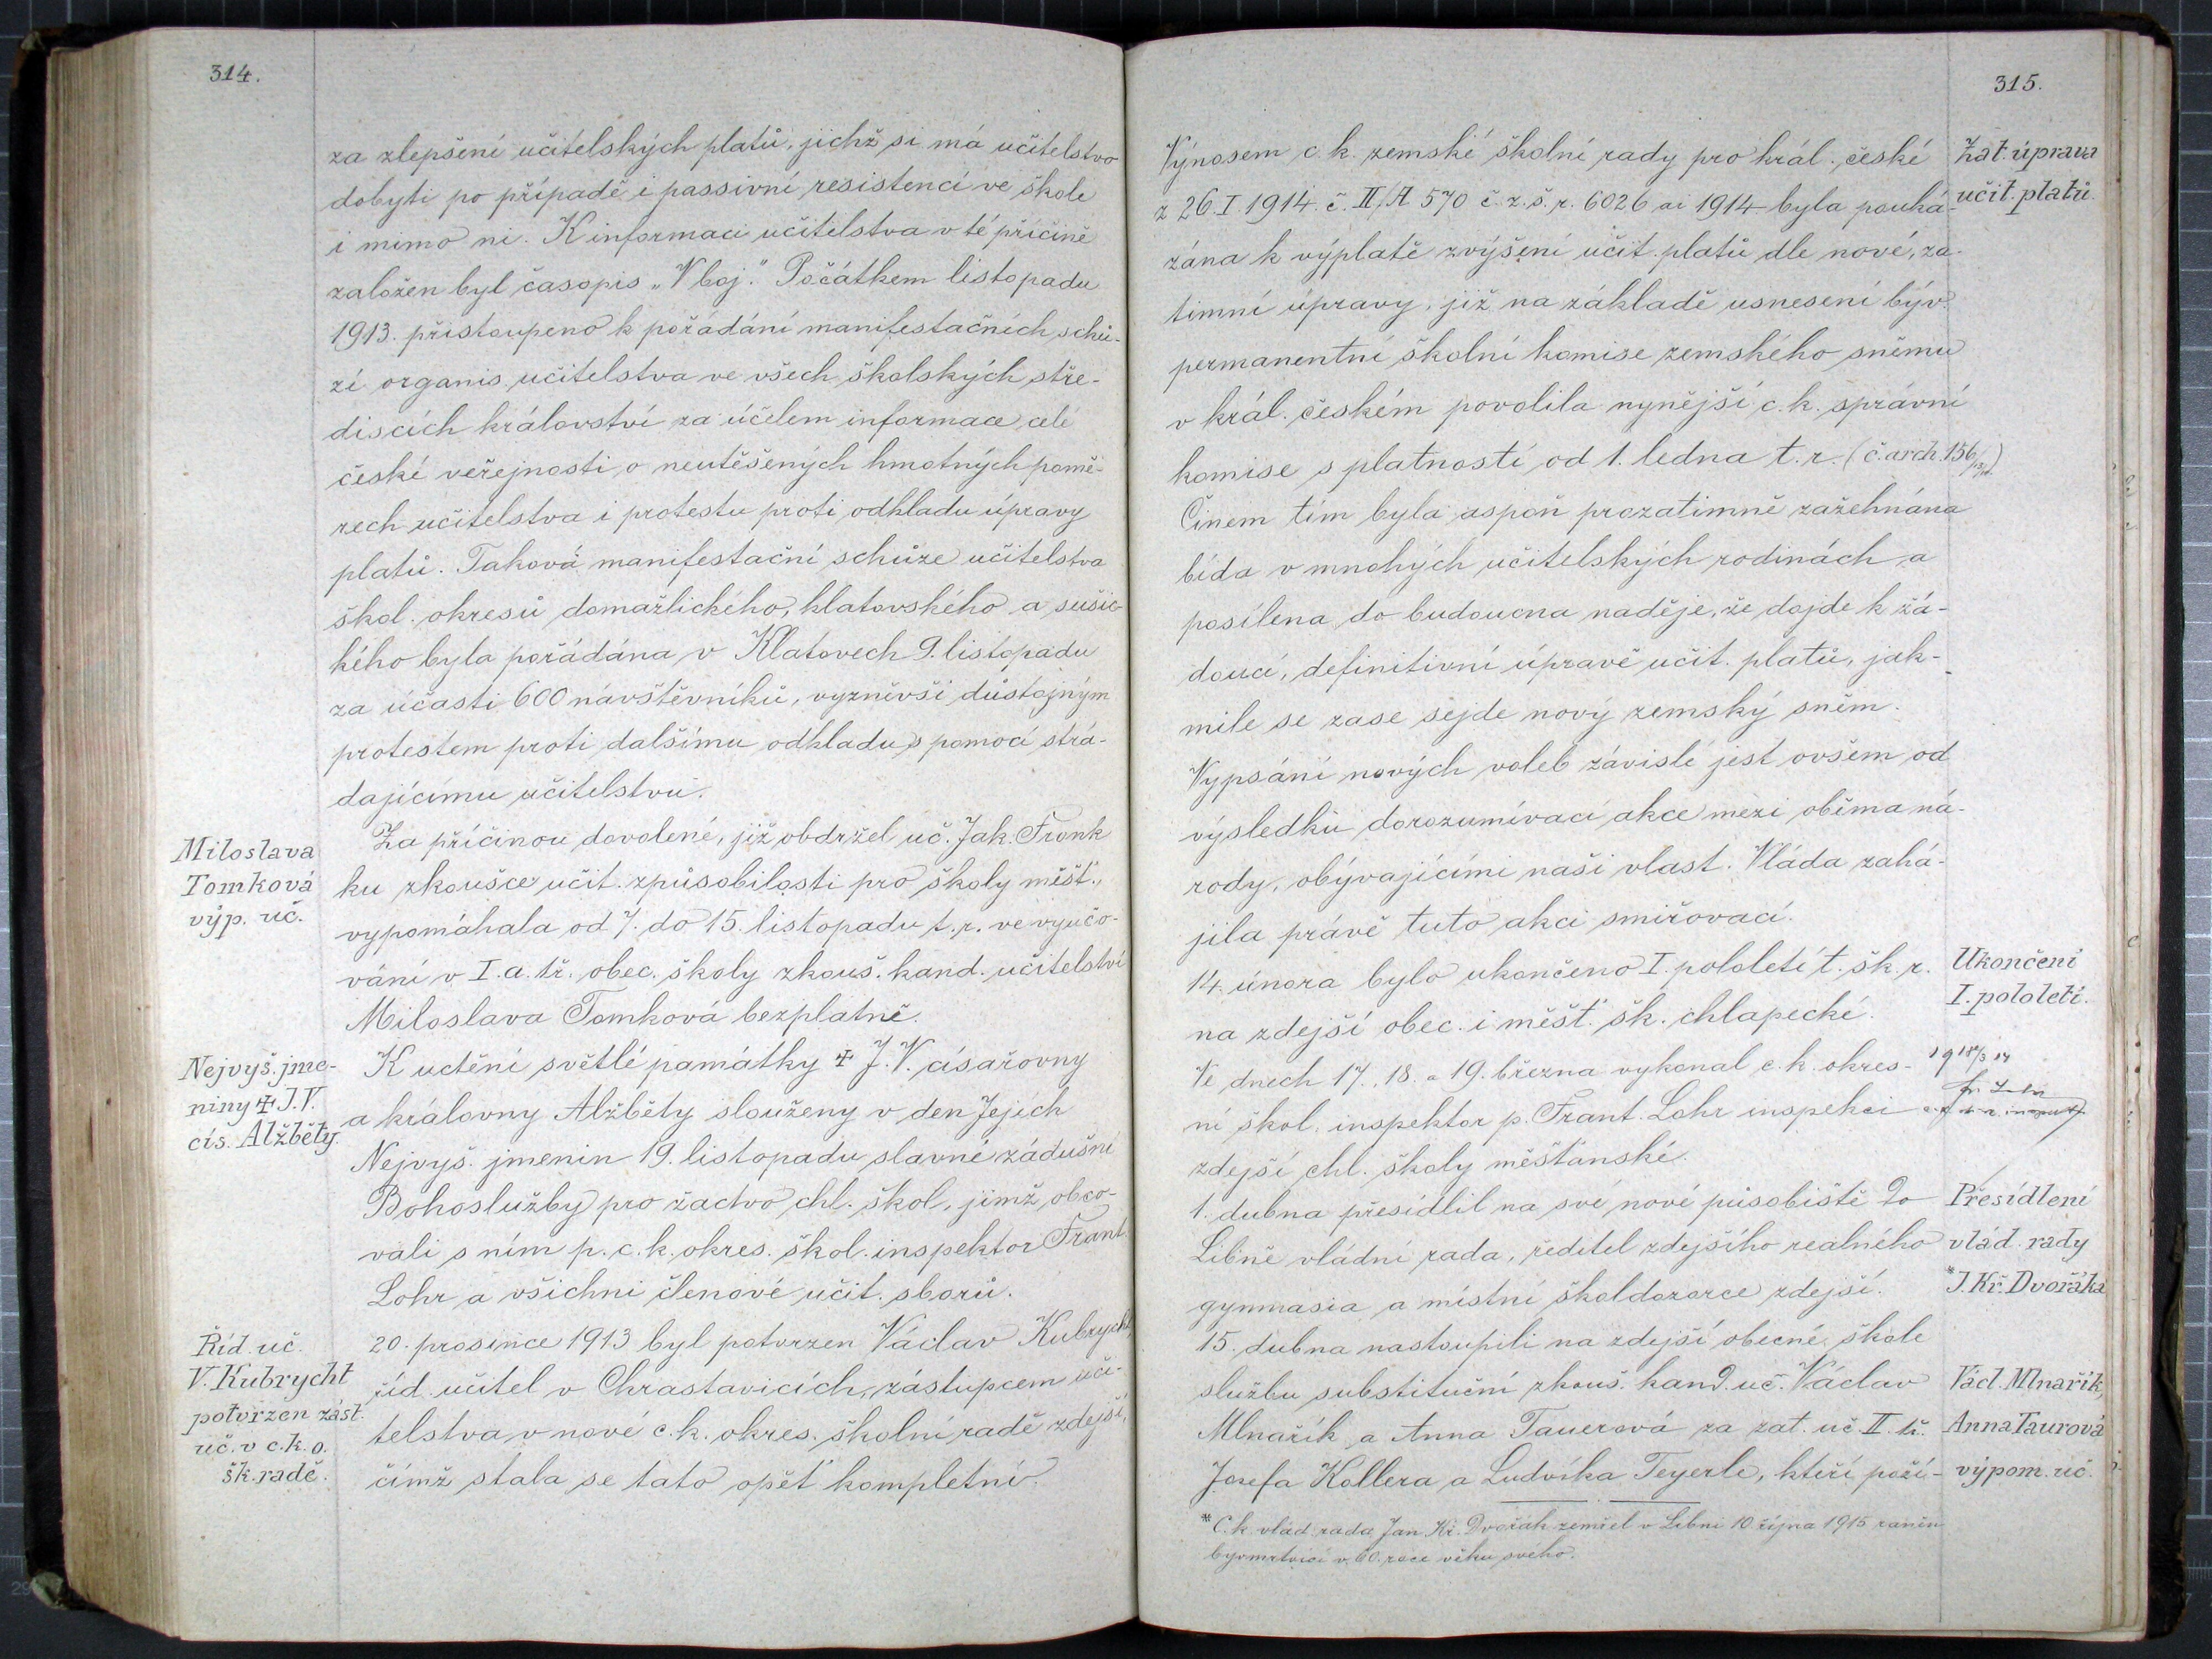 314.
za zlepšení učitelských platů, jichž si má učitelstvo
dobyti po případě i passivní resistencí ve škole
i mimo ni. K informaci učitelstva v té příčině
založen byl časopis „V boj.“ Počátkem listopadu
1913. přistoupeno k pořádání manifestačních schů-
zí organis. učitelstva ve všech školských stře-
discích království za účelem informace celé
české veřejnosti o neutěšených hmotných pomě-
rech učitelstva i protestu proti odkladu úpravy
platů. Taková manifestační schůze učitelstva
škol. okresů domažlického, klatovského a sušic-
kého byla pořádána v Klatovech 9. listopadu
za účasti 600 návštěvníků, vyznívši důstojným
protestem proti dalšímu odkladu s pomocí strá-
dajícímu učitelstvu.
Miloslava
Tomková
výp. uč.
Za příčinou dovolené, již obdržel uč. Jak. Fronk
ku zkoušce učit. způsobilosti pro školy měšť.,
vypomáhala od 7. do 15. listopadu t. r. ve vyučo-
vání v I. a. tř. obec. školy zkouš. kand. učitelství
Miloslava Tomková bezplatně.
Nejvyš. jme-
niny ✠ J. V.
cís. Alžběty.
K uctění světlé památky ✠ J. V. císařovny
a královny Alžběty slouženy v den Jejích
Nejvyš. jmenin 19. listopadu slavné zádušní
Bohoslužby pro žactvo chl. škol, jimž obco-
vali s ním p. c. k. okres. škol. inspektor Frant.
Lohr a všichni členové učit. sborů.
Říd. uč.
V. Kubrycht
potvrzen zást.
uč. v c. k. o.
šk. radě.
20. prosince 1913 byl potvrzen Václav Kubrycht,
říd. učitel v Chrastavicích, zástupcem uči-
telstva v nové c. k. okres. školní radě zdejší,
čímž stala se tato opět kompletní.
315.
Výnosem c. k. zemské školní rady pro král. české
z 26. I. 1914. č. II/A 570 č. z. š. r. 6026 ai 1914 byla pouká-
zána k výplatě zvýšení učit. platů dle nové, za-
timní úpravy, již na základě usnesení býv.
permanentní školní komise zemského sněmu
v král. českém povolila nynější c. k. správní
komise s platností od 1. ledna t. r. (č. arch. 156
Činem tím byla aspoň prozatimně zažehnána
bída v mnohých učitelských rodinách a
posílena do budoucna naděje, že dojde k žá-
doucí, definitivní úpravě učit. platů, jak-
mile se zase sejde nový zemský sněm.
Vypsání nových voleb závislé jest ovšem od
výsledků dorozumívací akce mezi oběma ná-
rody, obývajícími naši vlast. Vláda zahá-
jila právě tuto akci smiřovací.
Zat. úprava
učit. platů.
14. února bylo ukončeno I. pololetí t. šk. r.
na zdejší obec. i měšť. šk. chlapecké.
Ukončení
I. pololetí.
Ve dnech 17., 18. a 19. března vykonal c. k. okres-
ní škol. inspektor p. Frant. Lohr inspekci
zdejší chl. školy měšťanské.
1. dubna přesídlil na své nové působiště do
Libně vládní rada, ředitel zdejšího reálného
gymnasia a místní školdozorce zdejší.
Přesídlení
vlád. rady
*J. Kř. Dvořáka
15. dubna nastoupili na zdejší obecné škole
službu substituční zkouš. kand. uč. Václav
Mlnařík a Anna Tauerová za zat. uč. II. tř.
Josefa Kollera a Ludvíka Teyerle, kteří poží-
Václ. Mlnařík,
Anna Taurová
výpom. uč.
*C. k. vlád. rada Jan Kř. Dvořák zemřel v Libni 10. října 1915 raněn
byv mrtvicí v 60. roce věku svého.